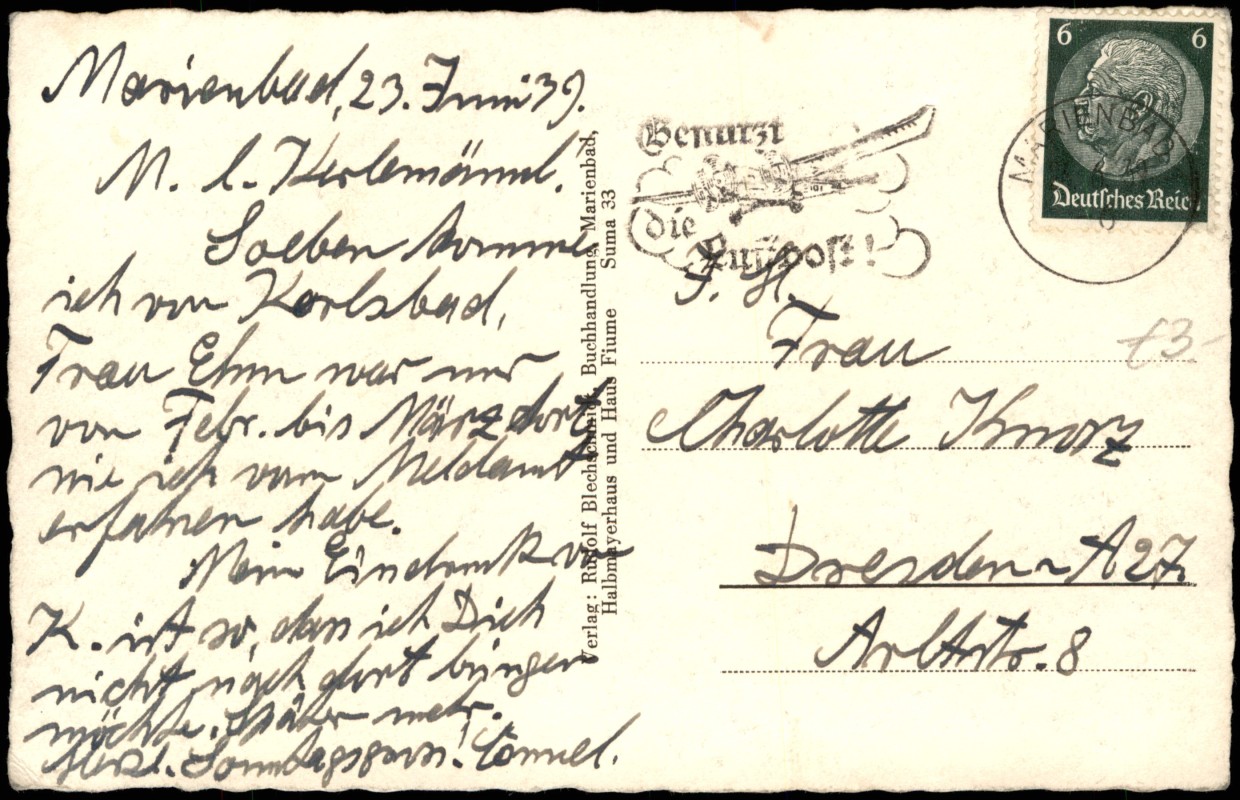 Marienbad, 23. Juni 39.
M. l. Kerlemännel.
Soeben komme
ich von Karlsbad,
Frau Ehm war nur
von Febr. bis März dort,
wie ich vom Meldamt
erfahren habe.
Mein Eindruck von
K. ist so, dass ich Dich
nicht nach dort bringen
möchte. Später mehr.
Herzl. Sonntagsgruss!
Verlag: Rudolf Blechschmidt, Buchhandlung, Marienbad,
Halbmayerhaus und Haus Fiume Suma 33
Benutzt
die
Luftpost!
6 6
Deutsches Reich
MARIENBAD
Frau
Charlotte Knorz
Dresden-A 27
Arltstr. 8